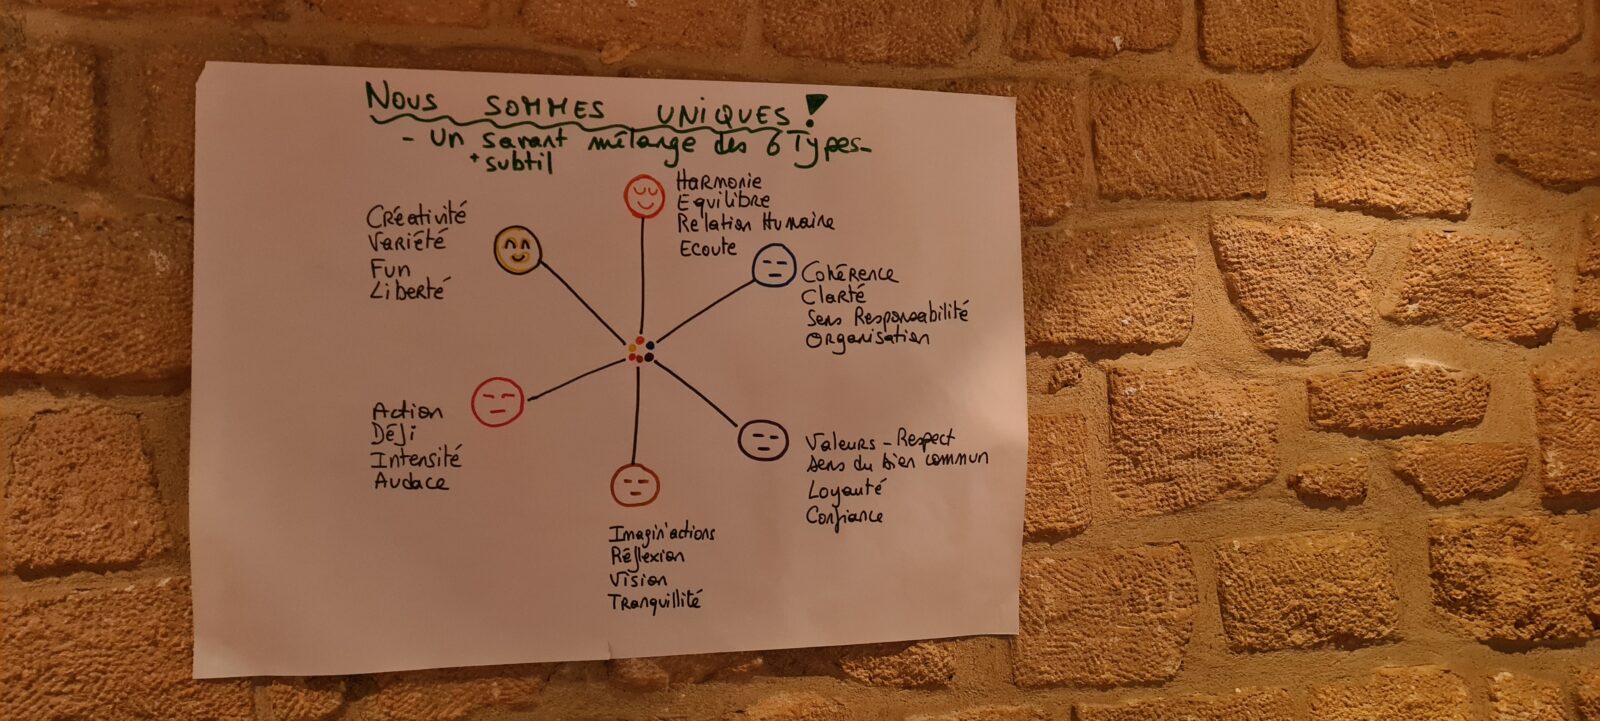 NOUS SOMMES UNIQUES!
- Un savant mélange des 6 Types -
+ subtil
Harmonie
Equilibre
Relation Humaine
Ecoute
Créativité
Variété
Fun
Liberté
Cohérence
Clarté
Sens Responsabilité
Organisation
Action
Défi
Intensité
Audace
Valeurs - Respect
Sens du bien commun
Loyauté
Confiance
Imagin'actions
Réflexion
Vision
Tranquillité